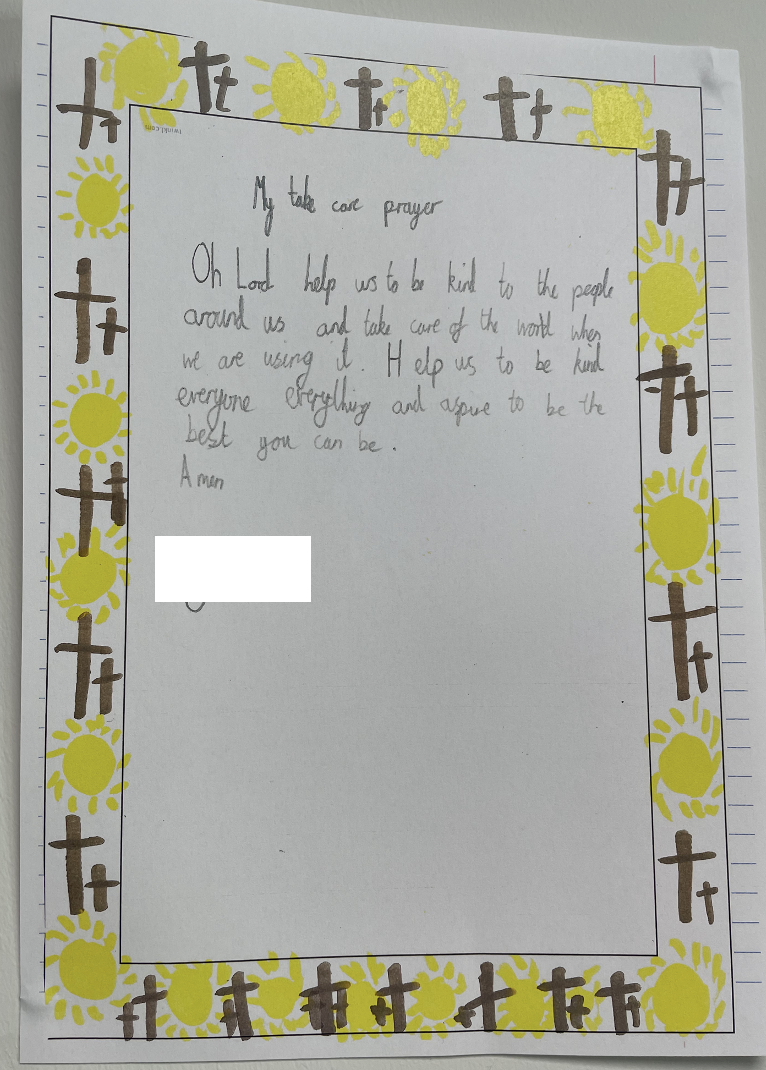 twinkl.com
My take care prayer
Oh Lord help us to be kind to the people
around us and take care of the world when
we are using it. Help us to be kind
everyone everything and aspire to be the
best you can be.
Amen